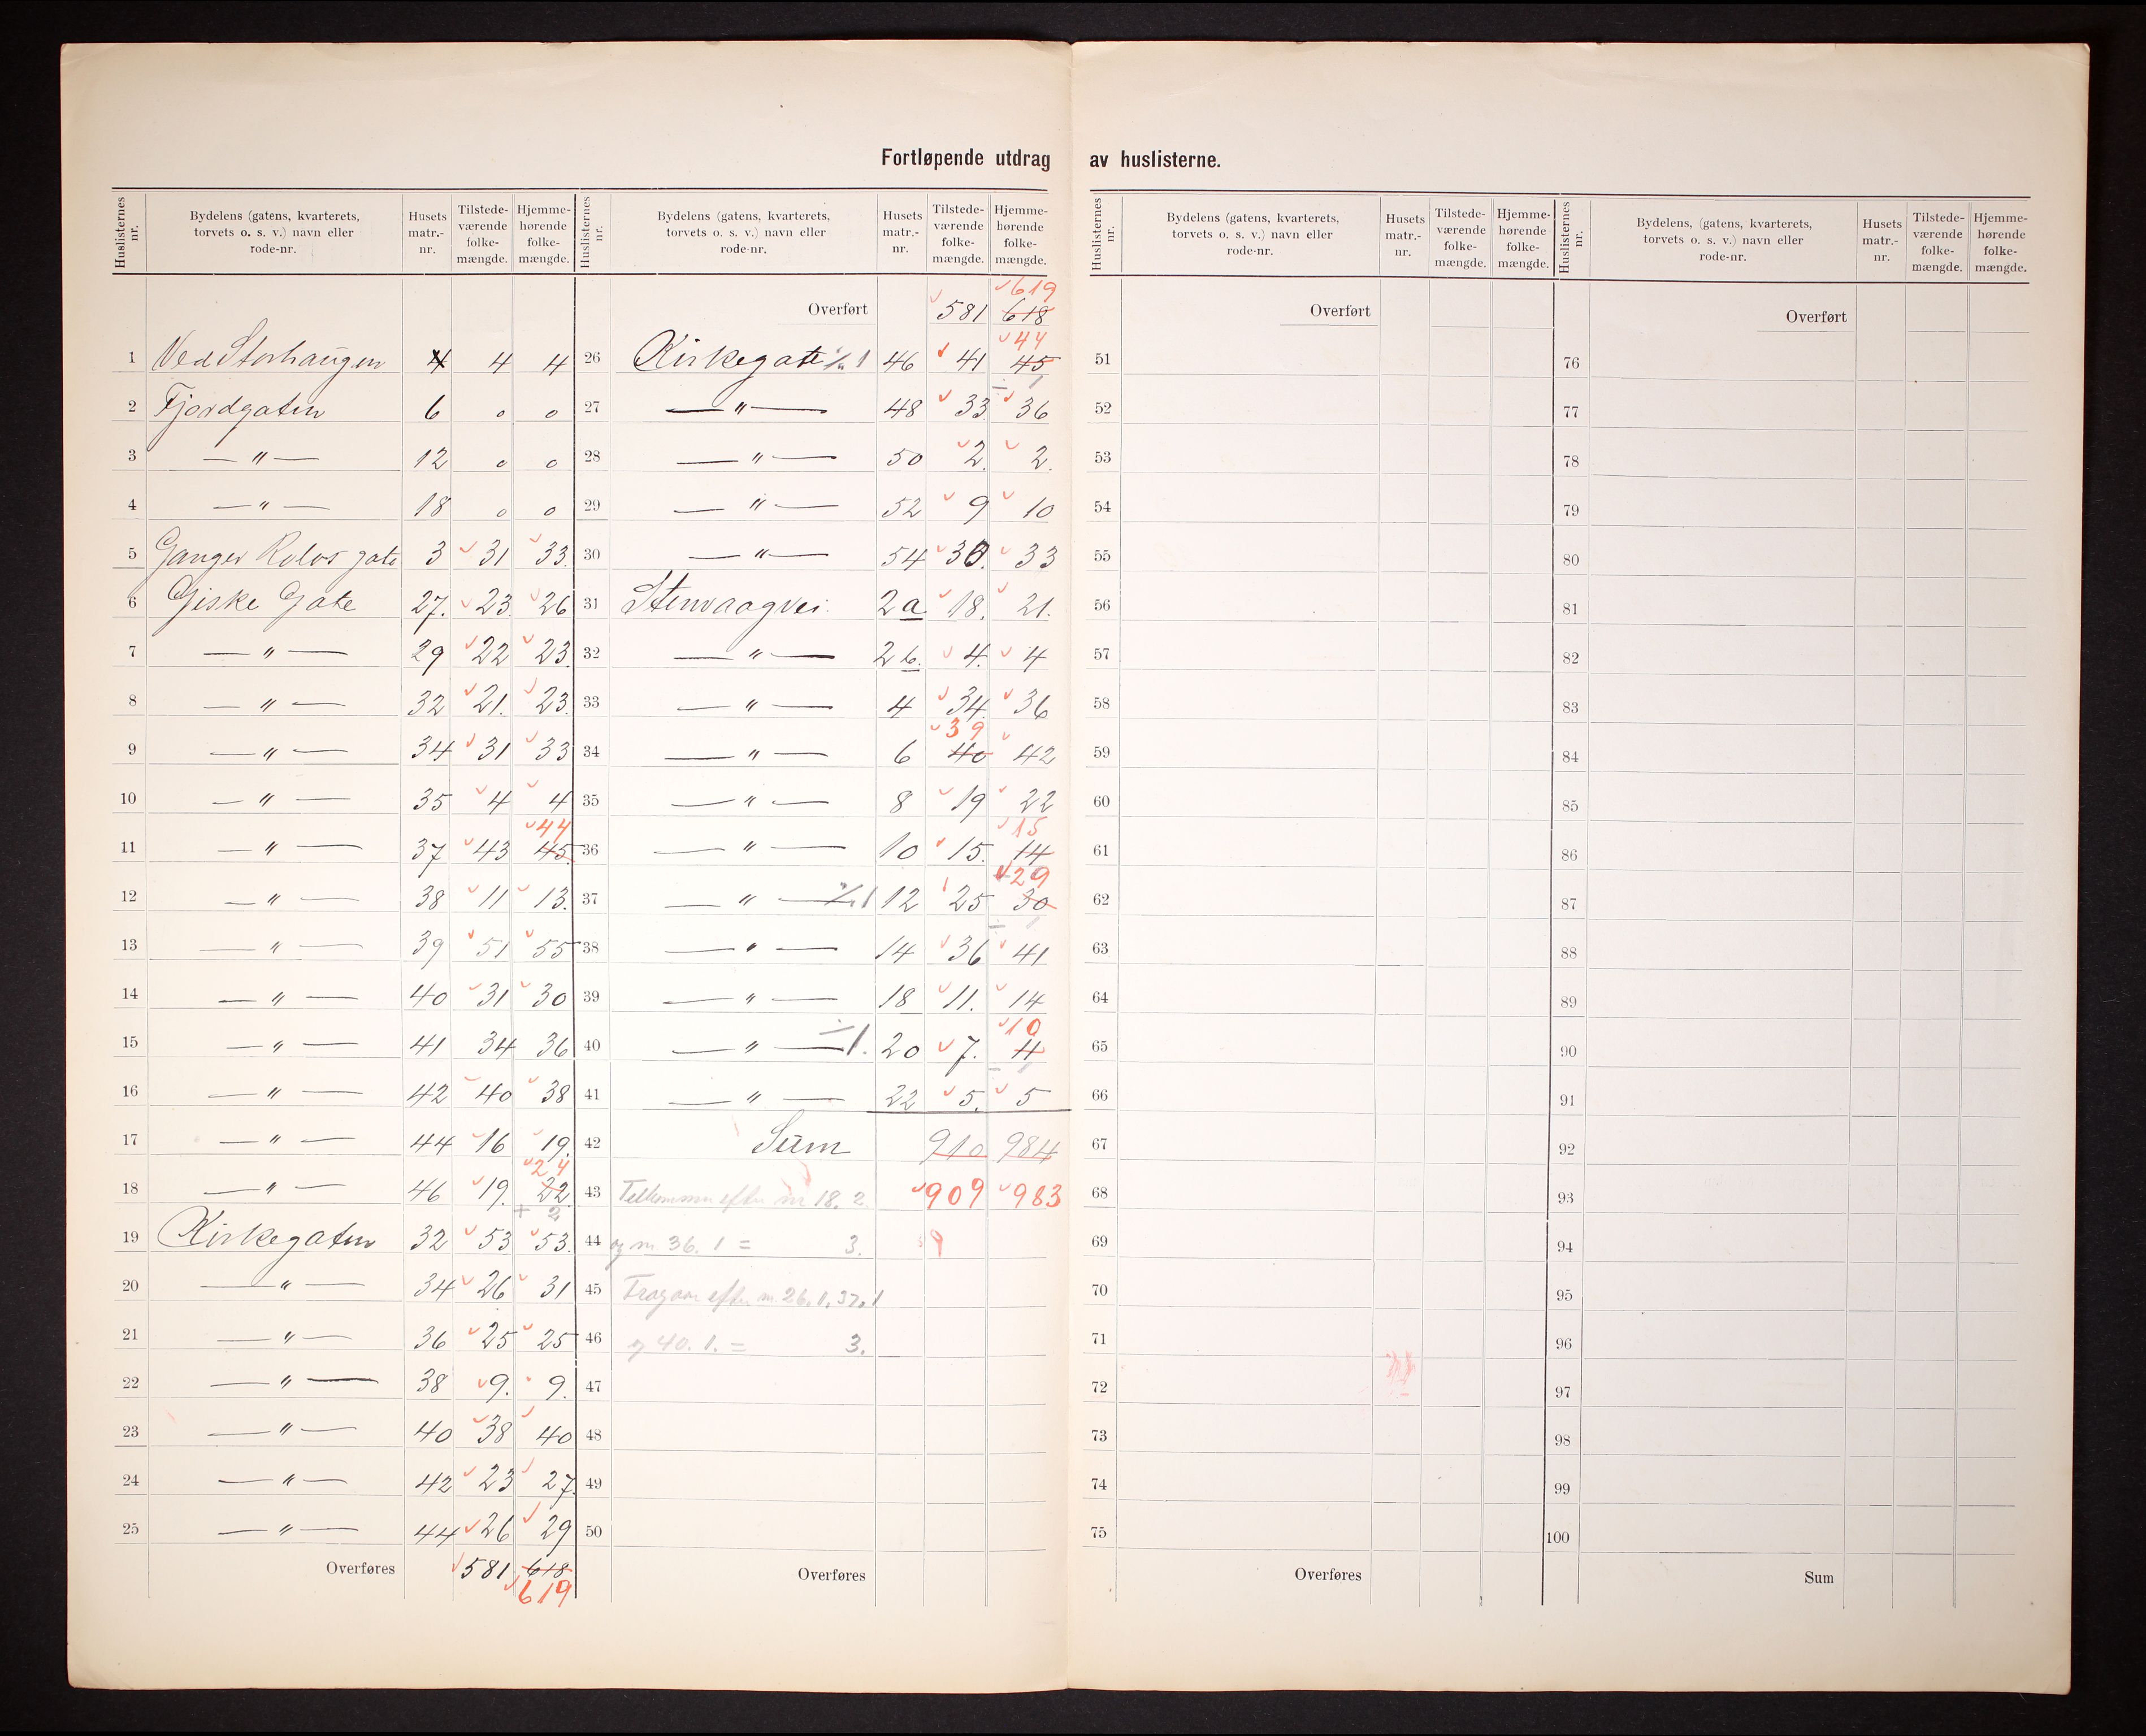 Fortløpende utdrag av huslisterne.
Huslisternes nr. Bydelens (gatens, kvarterets, torvets o. s. v.) navn eller rode-nr. Husets matr.-nr. Tilstede-værende folke-mængde. Hjemme-hørende folke-mængde.
1 Ved Storhaugen 4 4 4
2 Fjordgaten 6 0 0
3 — " — 12 0 0
4 — " — 18 0 0
5 Ganger Rolvs gate 3 31 33.
6 Giske Gate 27. 23. 26
7 — " — 29 22 23.
8 — " — 32 21. 23.
9 — " — 34 31 33
10 — " — 35 4 4
11 — " — 37 43 45. 44
12 — " — 38 11 13.
13 — " — 39 51 55
14 — " — 40 31 30
15 — " — 41 34 36
16 — " — 42 40 38
17 — " — 44 16 19.
18 — " — 46 19. 22. 24
+ 2
19 Kirkegaten 32 53 53.
20 — " — 34 26 31
21 — " — 36 25 25
22 — " — 38 9. 9.
23 — " — 40 38 40
24 — " — 42 23 27.
25 — " — 44 26 29
Overføres 581 618
619
Huslisternes nr. Bydelens (gatens, kvarterets, torvets o. s. v.) navn eller rode-nr. Husets matr.-nr. Tilstede-værende folke-mængde. Hjemme-hørende folke-mængde.
619
Overført 581 618
26 Kirkegate ÷ 1 46 41 45 44
÷ 1
27 — " — 48 33. 36
28 — " — 50 2. 2.
29 — " — 52 9 10
30 — " — 54 30. 33
31 Stenvaagvei. 2a 18. 21.
32 — " — 2b. 4. 4
33 — " — 4 34. 36
34 — " — 6 40 39 42
35 — " — 8 19 22
36 — " — 10 15. 14 15
37 — " — ÷ 1 12 25 30 29
÷ 1
38 — " — 14 36 41
39 — " — 18 11. 14
40 — " — ÷ 1. 20 7. 11 10
÷ 1
41 — " — 22 5. 5
42 Sum 910 984
43 Tilkommen efter nr 18. 2. 909 983
44 og nr. 36. 1 = 3. 9
45 Fragaar efter nr. 26. 1, 37. 1
46 og 40. 1. = 3.
47
48
49
50
Overføres
Huslisternes nr. Bydelens (gatens, kvarterets, torvets o. s. v.) navn eller rode-nr. Husets matr.-nr. Tilstede-værende folke-mængde. Hjemme-hørende folke-mængde.
Overført
51
52
53
54
55
56
57
58
59
60
61
62
63
64
65
66
67
68
69
70
71
72
73
74
75
Overføres
Huslisternes nr. Bydelens, (gatens, kvarterets, torvets o. s. v.) navn eller rode-nr. Husets matr.-nr. Tilstede-værende folke-mængde. Hjemme-hørende folke-mængde.
Overført
76
77
78
79
80
81
82
83
84
85
86
87
88
89
90
91
92
93
94
95
96
97
98
99
100
Sum